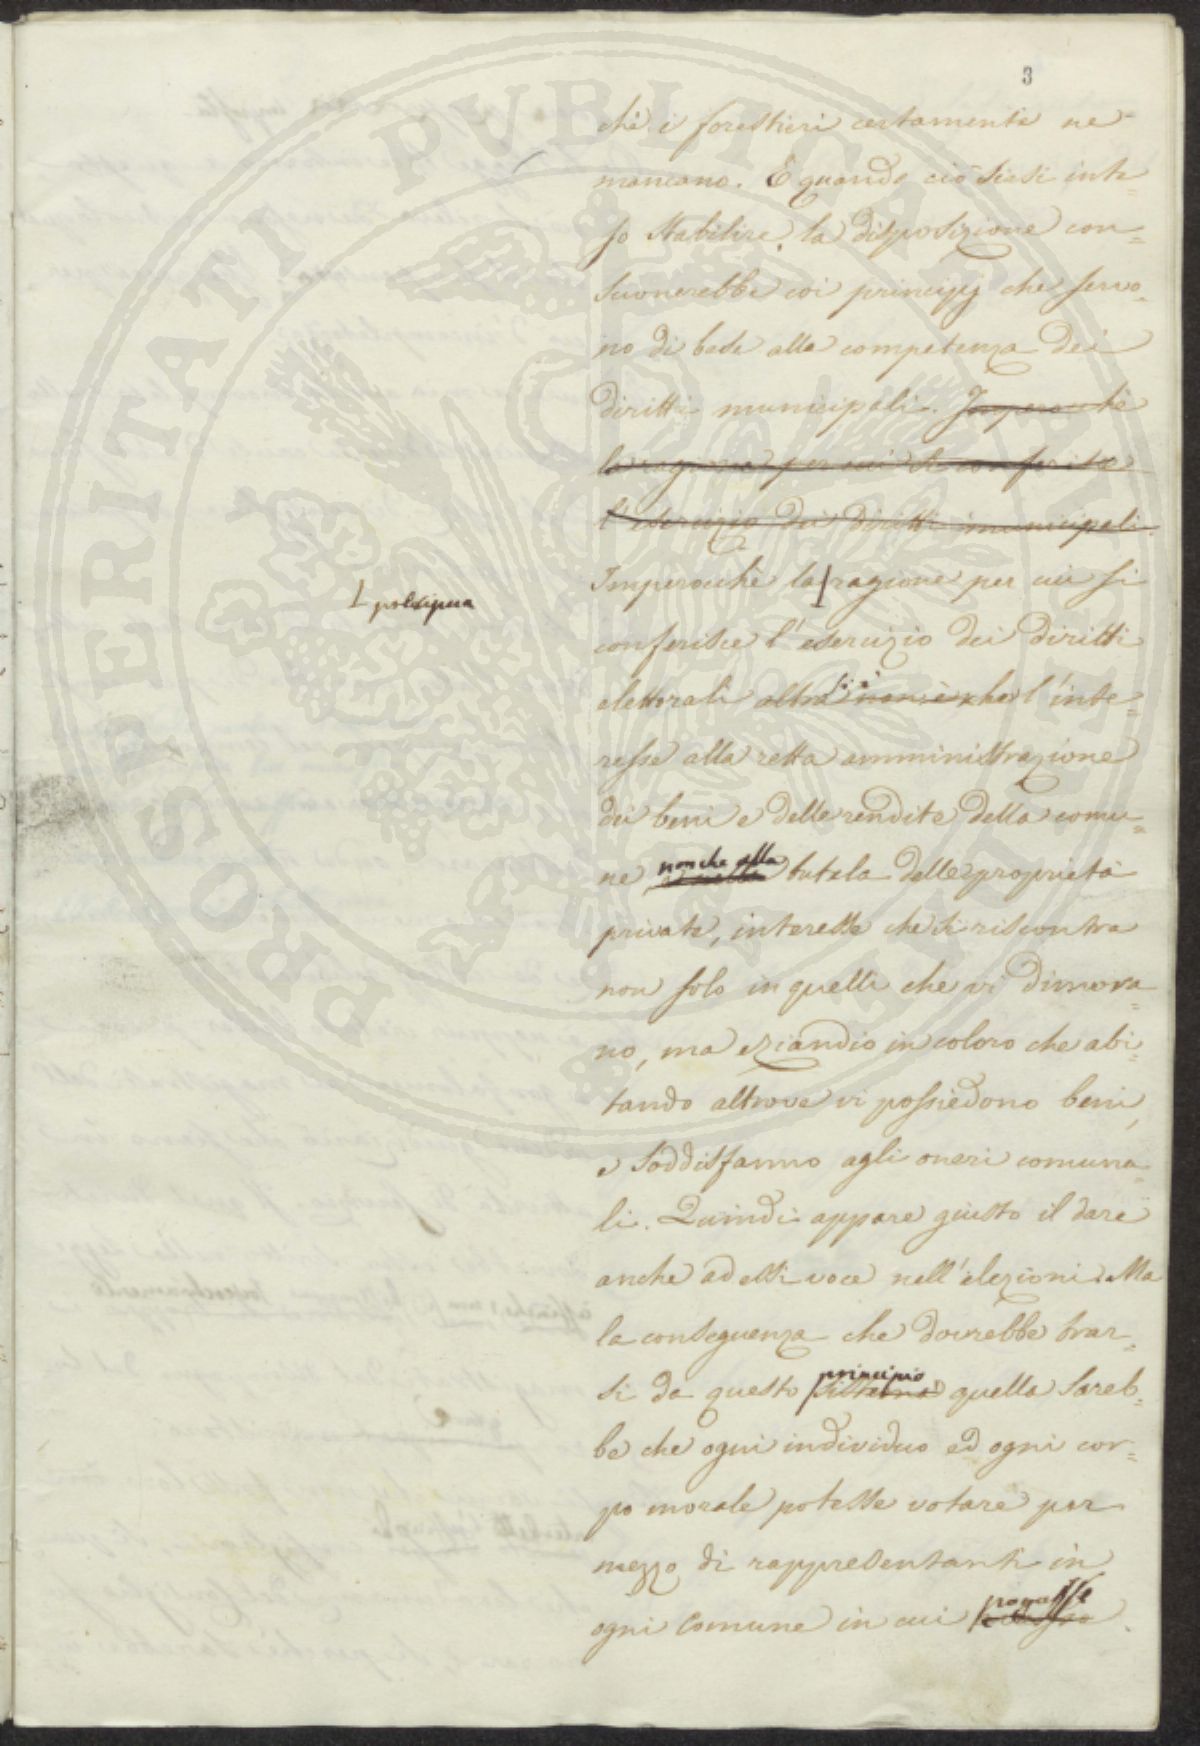 3
chè i forestieri certamente ne
mancano. E quando ciò siasi inte=
so stabilire, la disposizione con=
suonerebbe coi principj che servo=
no di base alla competenza dei
diritti municipali. Imperochè
la ragione per cui si conferisce
l'esercizio dei diritti municipali.
Imperocchè la ragione per cui si
conferisce l'esercizio dei diritti
elettorali altra non è che l'inte=
resse alla retta amministrazione
dei beni e delle rendite della comu=
ne nonche alla tutela delle proprietà
private, interesse che si riscontra
non solo in quelli che vi dimora=
no, ma eziandio in coloro che abi=
tando altrove vi possiedono beni,
e soddisfanno agli oneri comuna=
li. Quindi appare giusto il dare
anche ad essi voce nell'elezioni. Ma
la conseguenza che dovrebbe trar=
si da questo principio sistema quella sareb=
be che ogni individuo ed ogni cor=
po morale potesse votare per
mezzo di rappresentanti in
ogni Comune in cui pagasse
PROSPERITATI PUBLICAE